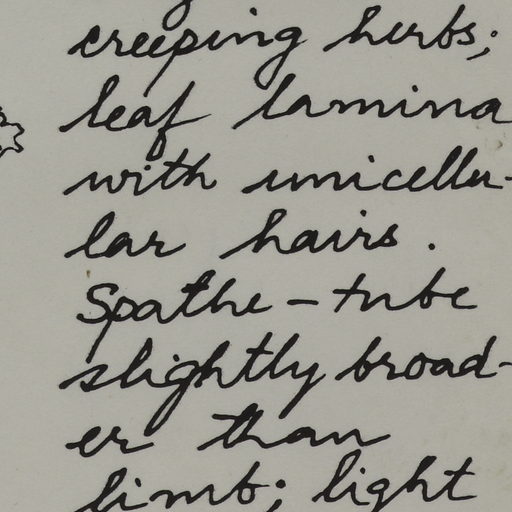 creeping herbs;
leaf lamina
with unicellu-
lar hairs.
Spathe-tube
slightly broad-
er than
limb; light